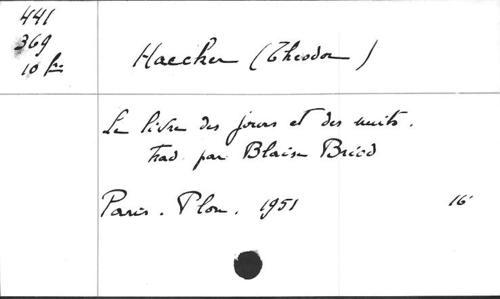 441
369
10 frs
Haecker (Theodor)
Le livre des jours et des nuits.
trad. par Blaise Briod
Paris. Plon. 1951 16°